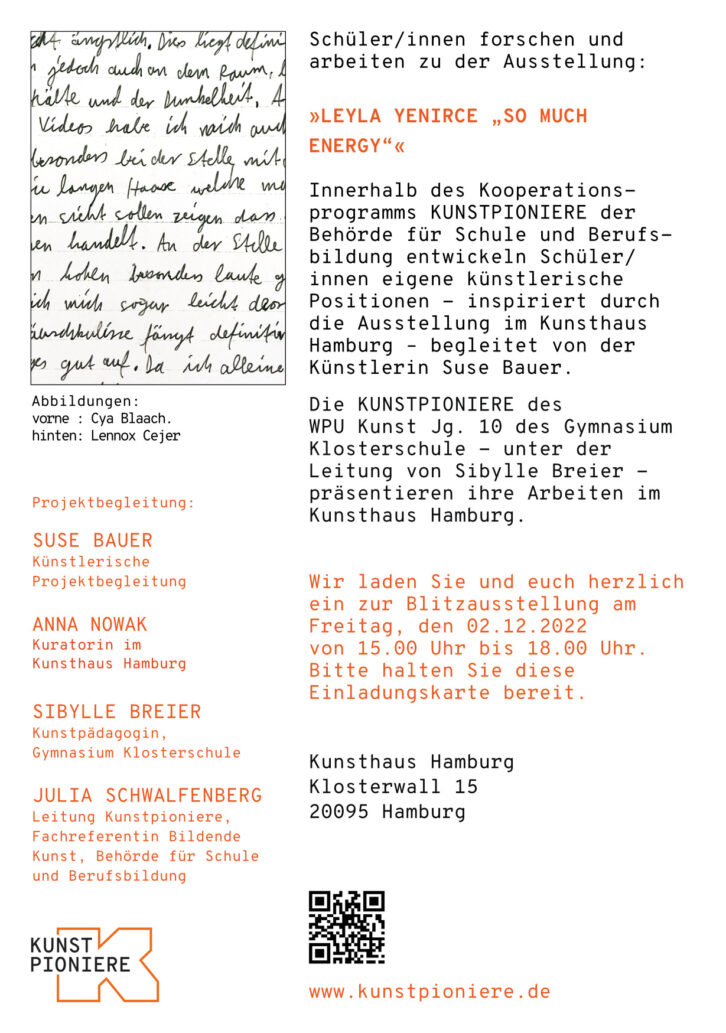 ängstlich. Dies liegt
jedoch auch an dem Raum,
und der Dunkelheit.
Videos habe ich mich auch
besonders bei der Stelle mit
langen Haare welche
sicht sollen zeigen dass
handelt. An der Stelle
hohen besonders laute
ich mich sogar leicht
fängt
gut auf. Da ich alleine
Abbildungen:
vorne : Cya Blaach.
hinten: Lennox Cejer
Projektbegleitung:
SUSE BAUER
Künstlerische
Projektbegleitung
ANNA NOWAK
Kuratorin im
Kunsthaus Hamburg
SIBYLLE BREIER
Kunstpädagogin,
Gymnasium Klosterschule
JULIA SCHWALFENBERG
Leitung Kunstpioniere,
Fachreferentin Bildende
Kunst, Behörde für Schule
und Berufsbildung
KUNST
PIONIERE
Schüler/innen forschen und
arbeiten zu der Ausstellung:
»LEYLA YENIRCE „SO MUCH
ENERGY“«
Innerhalb des Kooperations-
programms KUNSTPIONIERE der
Behörde für Schule und Berufs-
bildung entwickeln Schüler/
innen eigene künstlerische
Positionen – inspiriert durch
die Ausstellung im Kunsthaus
Hamburg – begleitet von der
Künstlerin Suse Bauer.
Die KUNSTPIONIERE des
WPU Kunst Jg. 10 des Gymnasium
Klosterschule – unter der
Leitung von Sibylle Breier –
präsentieren ihre Arbeiten im
Kunsthaus Hamburg.
Wir laden Sie und euch herzlich
ein zur Blitzausstellung am
Freitag, den 02.12.2022
von 15.00 Uhr bis 18.00 Uhr.
Bitte halten Sie diese
Einladungskarte bereit.
Kunsthaus Hamburg
Klosterwall 15
20095 Hamburg
www.kunstpioniere.de